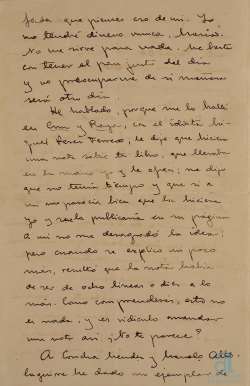 fada que pienses eso de mi. Yo
no tendré dinero nunca, hermano.
No me sirve para nada. Me basta
con tener el pan justo del día
y no preocuparme de si mañana
será otro día.
He hablado, porque me lo hallé
en Cruz y Raya, con el idiota
Pérez Ferrero, le dije que hiciera
una nota sobre tu libro, que llevaba
en la mano yo y le ofrecí; me dijo
que no tenía tiempo y que si a
mí me parecía bien que la hiciera
yo y saldría publicaría en su página
A mí no me desagradó la idea;
pero cuando se explicó un poco
más, resultó que la nota había
de ser de ocho líneas o diez a lo
más. Como comprenderás, esto no
es nada, y es ridículo mandar
una nota así. ¿No te parece?
A Concha Méndez y Manolo Alto-
laguirre he dado un ejemplar de